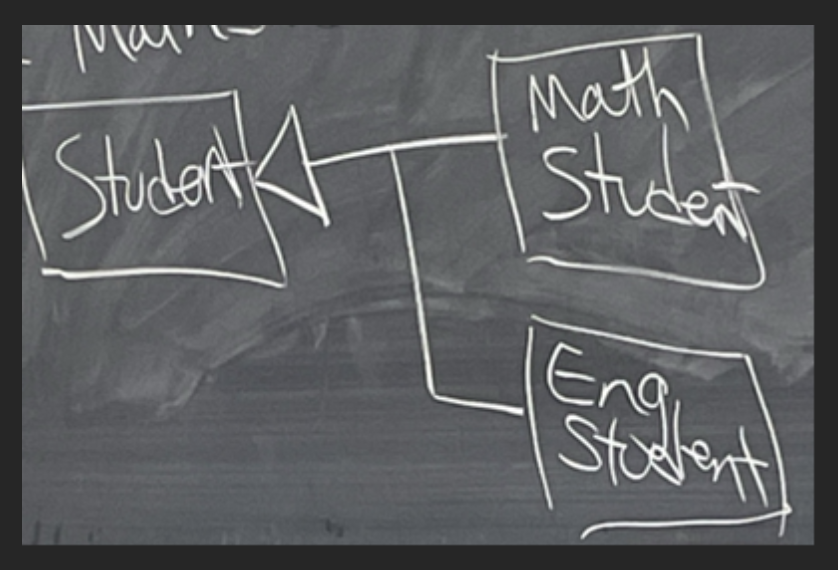 Student
Math
Student
Eng
Student